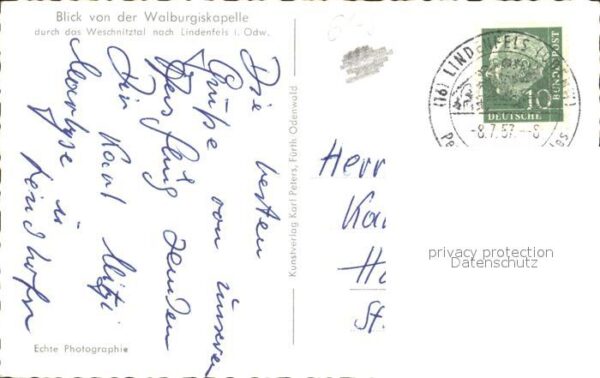 Blick von der Walburgiskapelle
durch das Weschnitztal nach Lindenfels i. Odw.
Die besten
Grüße von unserem
senden
Karl Mitzi
Echte Photographie
Kunstverlag Karl Peters, Fürth Odenwald
(16) LINDENFELS
-8.7.57.-8
10
BUNDESPOST
DEUTSCHE
Herr
Ka
Ha
St.
privacy protection
Datenschutz